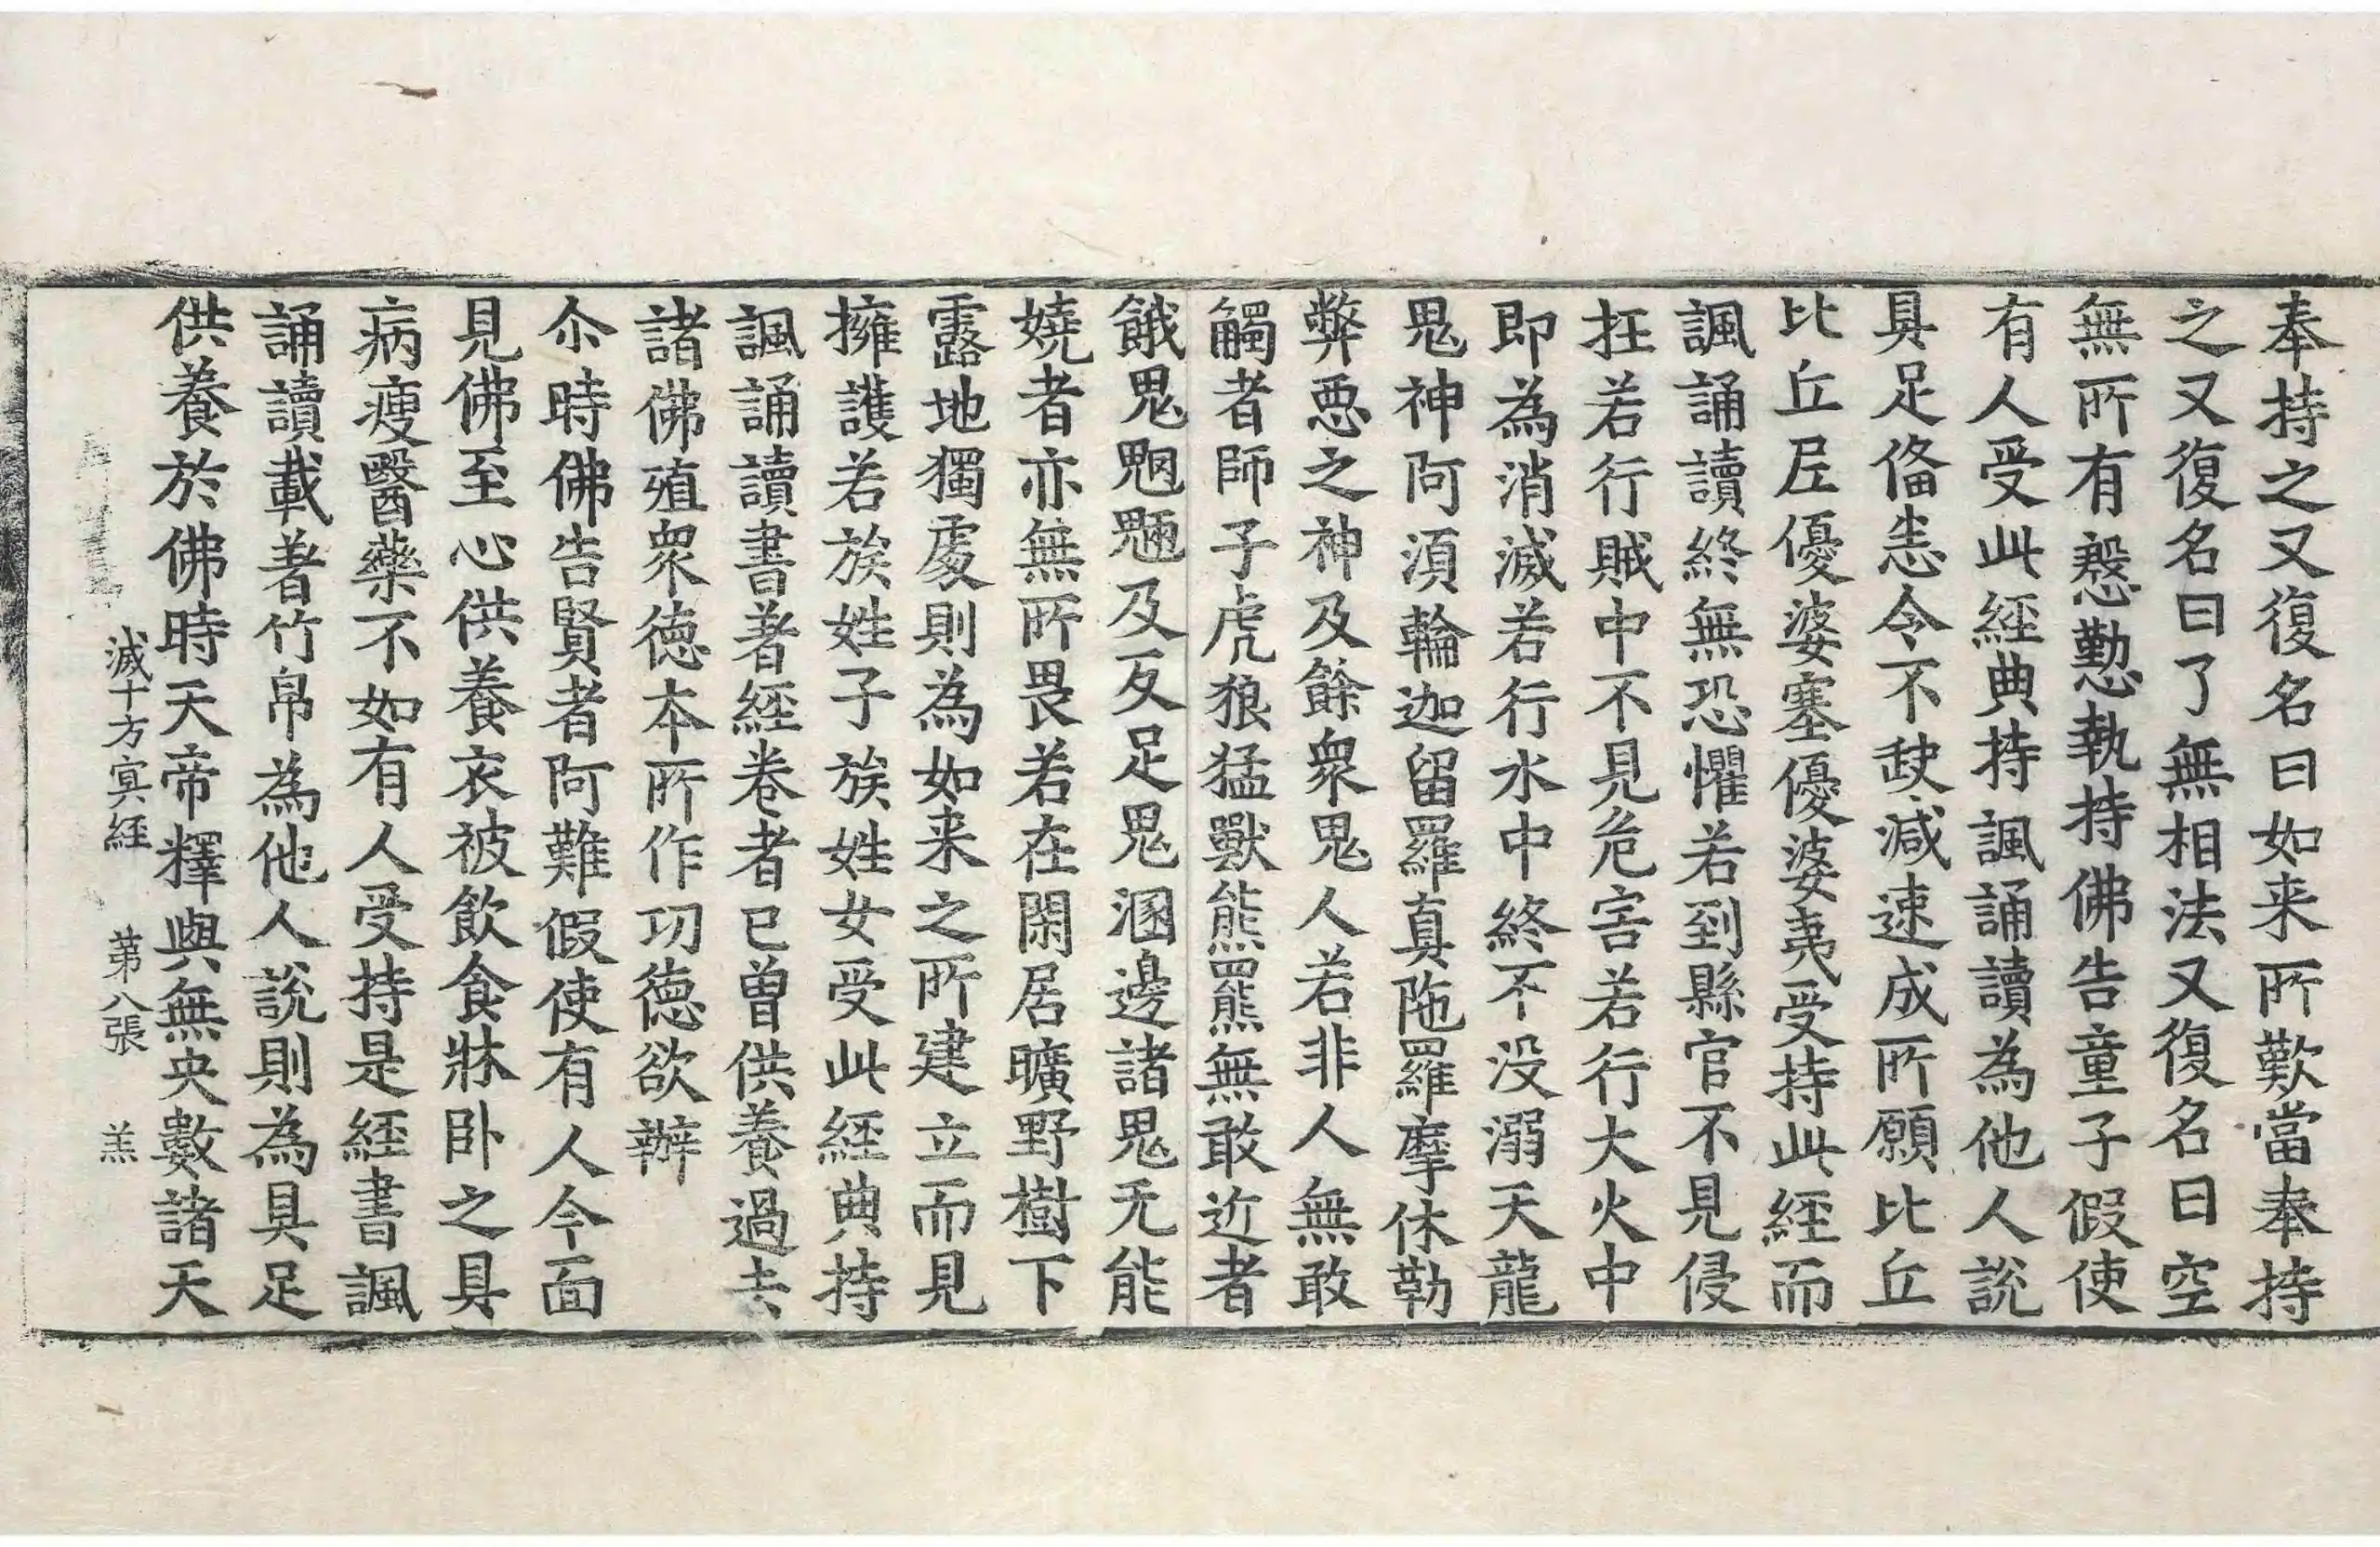 奉持之又復名曰如来所歎當奉持
之又復名曰了無相法又復名曰空
無所有慇懃執持佛告童子假使
有人受此經典持諷誦讀為他人說
具足俻恚令不𡙇減速成所願比丘
比丘𡰱優婆塞優婆夷受持此經而
諷誦讀終無恐懼若到縣官不見侵
抂若行賊中不見危害若行大火中
即為消滅若行水中終不没溺天龍
鬼神阿須輪迦留羅真陁羅摩休勒
弊惡之神及餘衆鬼人若非人無敢
觸者師子虎狼猛獸熊羆無敢近者
餓鬼魍魎及反足鬼溷邊諸鬼无能
嬈者亦無所畏若在閑居曠野樹下
露地獨處則為如来之所建立而見
擁護若族姓子族姓女受此經典持
諷誦讀書著經卷者已曾供養過去
諸佛殖衆德本所作功德欲辦
尒時佛告賢者阿難假使有人今面
見佛至心供養衣被飲食牀卧之具
病瘦醫藥不如有人受持是經書諷
誦讀載著竹帛為他人說則為具足
供養於佛時天帝釋與無央數諸天
滅十方㝠經 第八張 羔